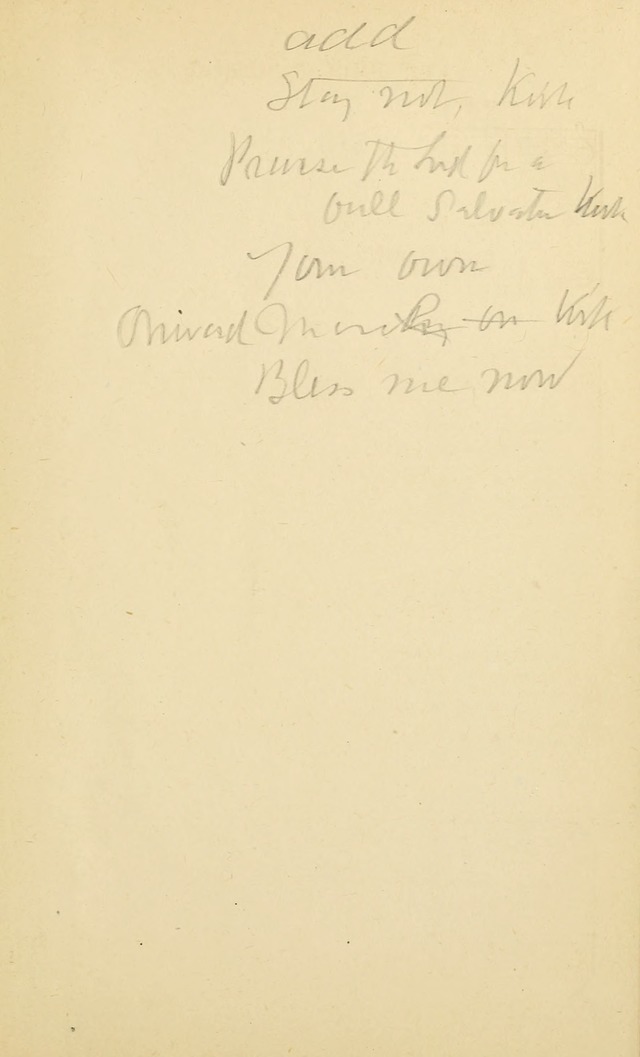 add
Stay not, Kirk
Praise the Lord for a
full Salvation Kirk
Your own
Onward March on Kirk
Bless me now